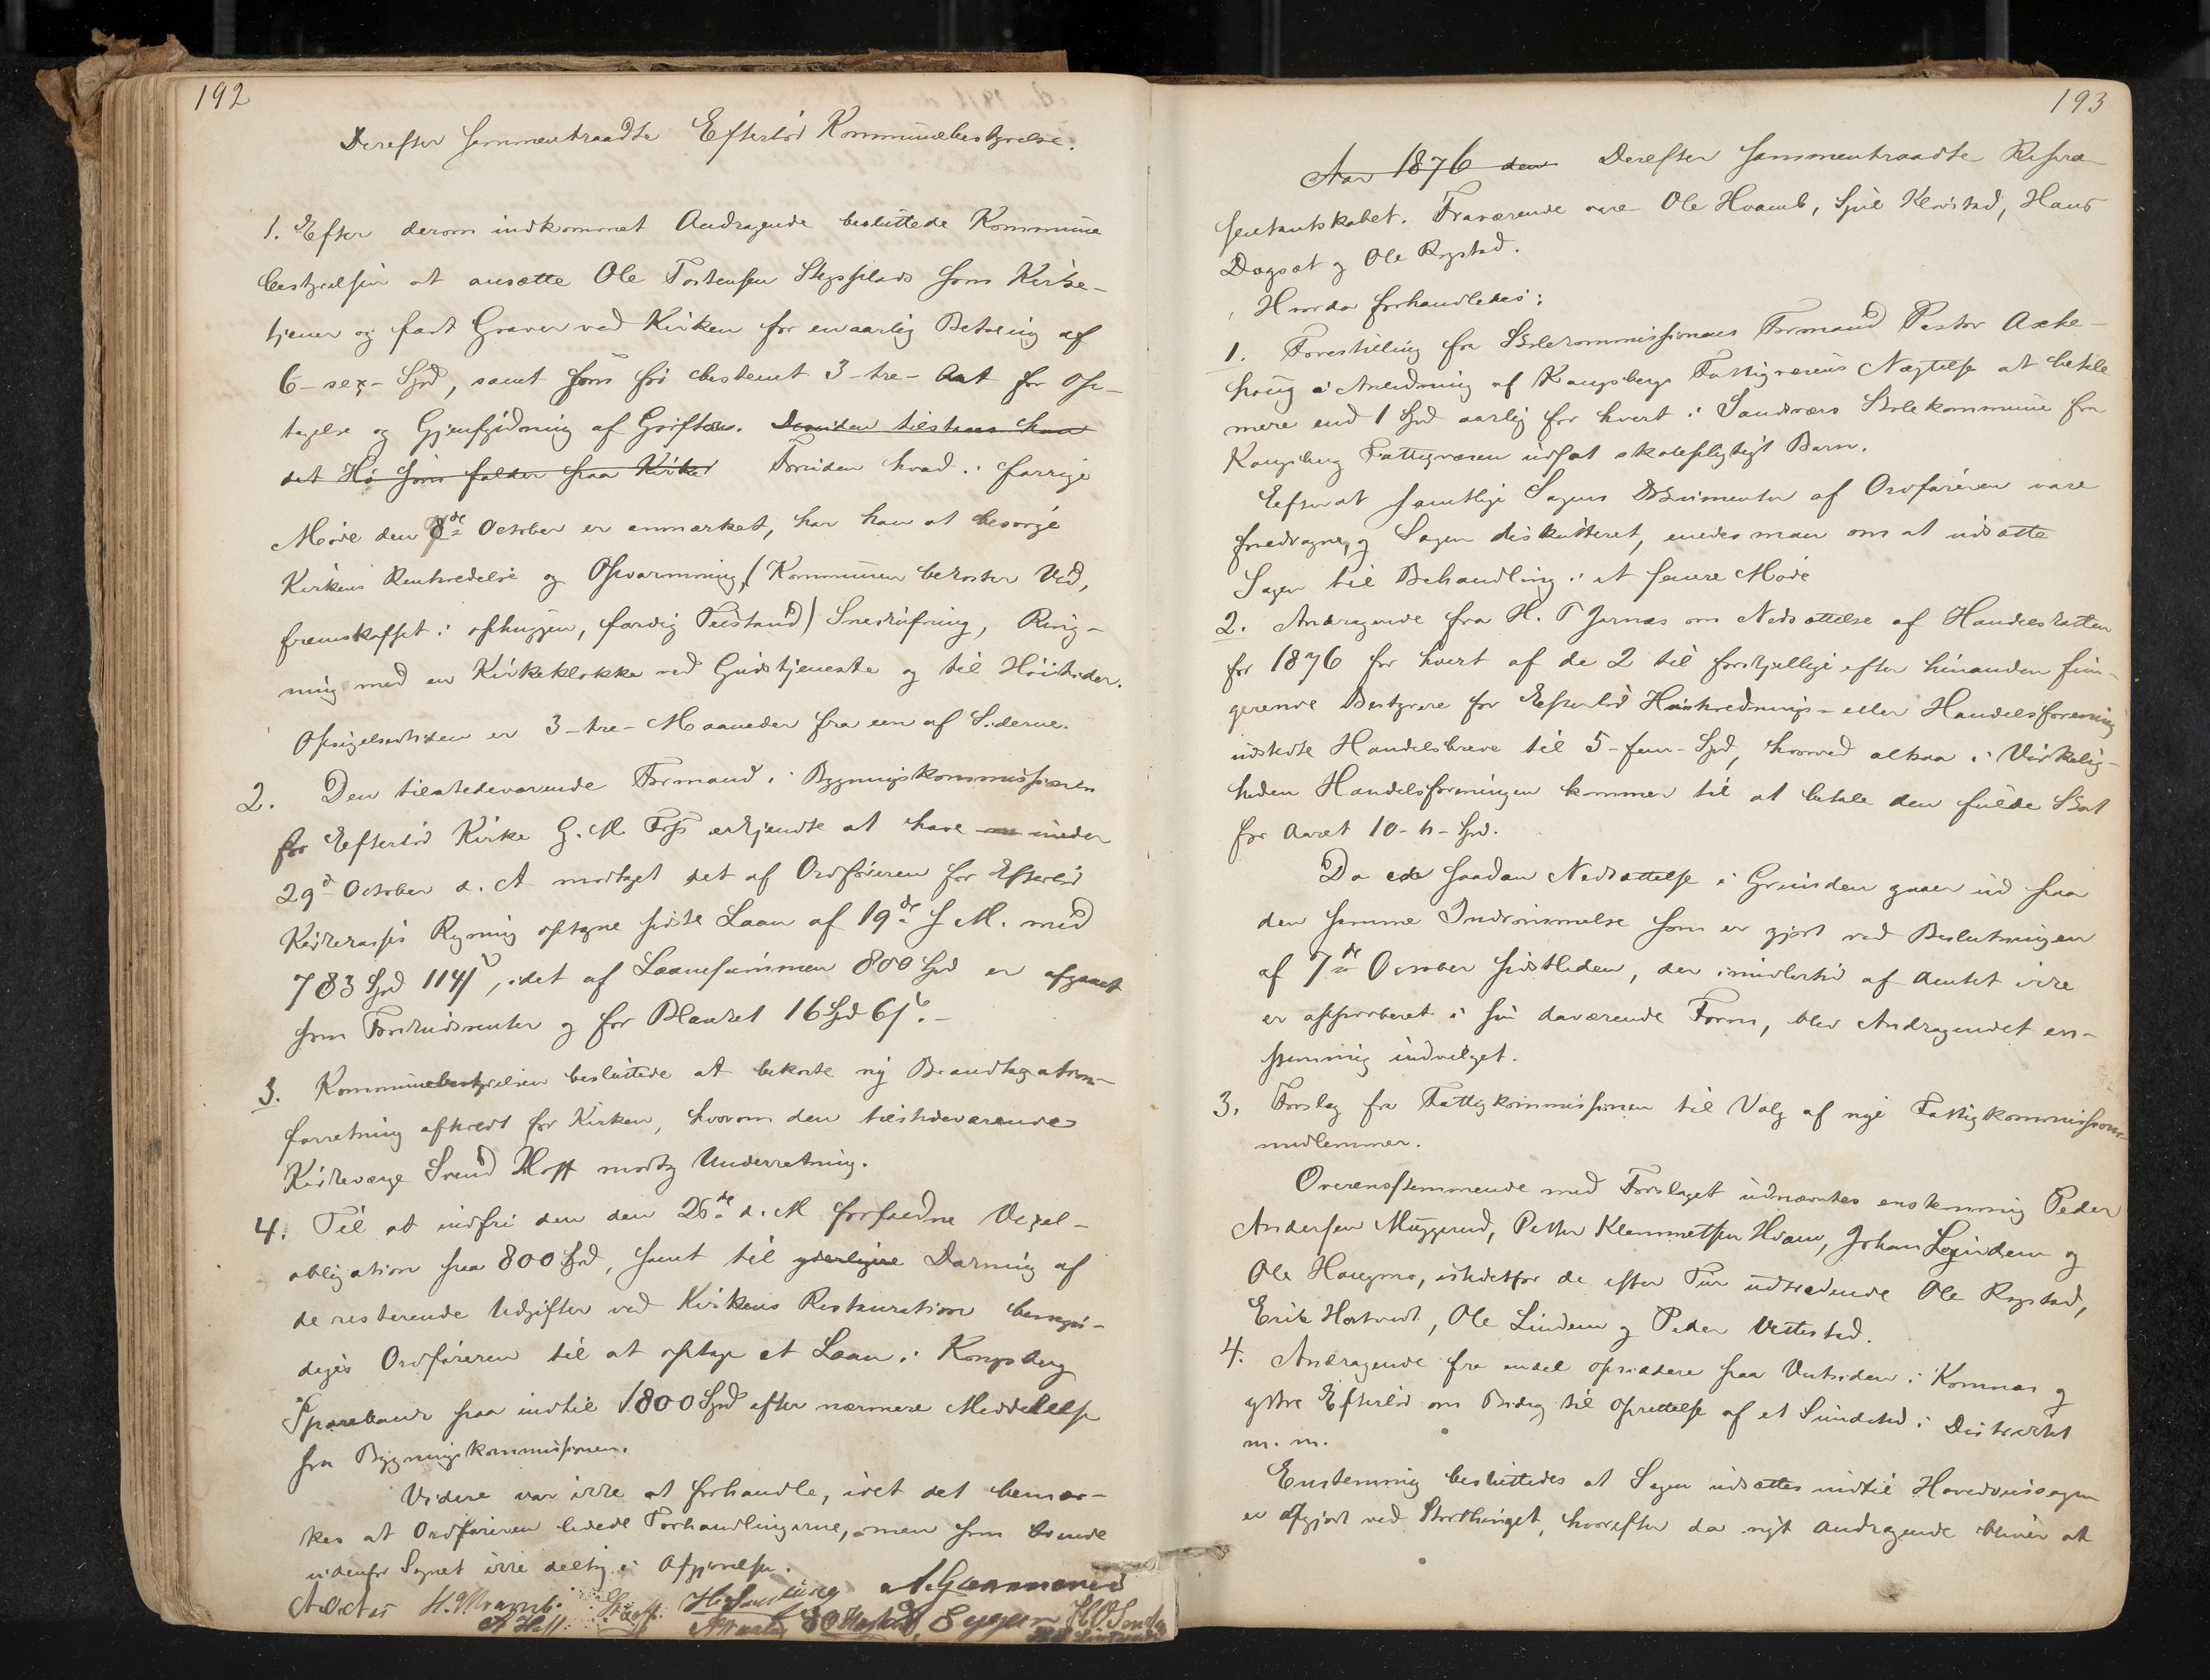 192
Derefter sammentraadte Efterlød Kommunebestyrelse.
1. Efter derom indkommet Andragende besluttede Kommune
bestyrelsen at ansætte Ole Tostensen som Kirke-
tjener og fast Graver ved Kirken for en aarlig Betaling af
6 - sex - Spd, samt som før bestemt 3 - tre - Ort for Op-
tagelse og Gjenfyldning af Grifterne. Desuden tilstaaes ham
det Hø som falder paa Kirke Forriden hvad i forrige
Møde den 8de October er anmærket, har han at besørge
Kirkens Renholdelse og Opvarmning, (Kommunen bekoster Ved,
fremskaffet i ophuggen, færdig Tilstand) Snerydning, Ring-
ning med en Kirkeklokke ved Gudstjeneste og til Høitider.
Opsigelsestiden er 3 - tre - Maaneder fra een af Siderne.
2. Den tilstedeværende Formand i Bygningskommissionen
for Efterlød Kirke G. M. Foss erkjendte at have under
29d October d. A modtaget det af Ordføreren for Efterlød
Kirkekasses Regning optagne sidste Laan af 19de s M. med
783 Spd 114 s, idet af Laanesummen 800 Spd er afgaaet
som Forskudsrenter og for Blanket 16 Spd 6 s. -
3. Kommunebestyrelsen besluttede at bekoste ny Brandtaxations-
forretning afholdt for Kirken, hvorom den tilstedeværende
Kirkeværge Svend Hoff modtog Underretning.
4. Til at indfri den den 26de d. M forfaldne Vexel-
obligation paa 800 Spd, samt til yderligere Dækning af
de resterende Udgifter ved Kirkens Restauration bemyn-
diges Ordføreren til at optage et Laan i Kongsberg
Sparebank paa indtil 1800 Spd efter nærmere Meddelelse
fra Bygningskommissionen.
Videre var ikke at forhandle, idet det bemær-
kes at Ordføreren ledede Forhandlingerne, men som boende
udenfor Sognet ikke deltog i Afgjørelsen.
193
Aar 1876 den Derefter sammentraadte Repræ-
sentantskabet. Fraværende vare Ole Hvamb, Sjul Klovstad, Hans
og Ole Rogstad.
Hvorda forhandledes:
1. Forestilling fra Skolekommissionens Formand Pastor Aske-
houg i Anledning af Kongsbergs Fattigvæsens Nægtelse at betale
mere end 1 Spd aarlig for hvert i Sandsværs Skolekommune fra
Kongsberg Fattigvæsen udsat skolepligtigt Barn.
Efterat samtlige Sagens Dokumenter af Ordføreren vare
foredragne, og Sagen diskutteret, enedes man om at udsætte
Sagen til Behandling i et senere Møde
2. Andragende fra H. T Jarnæs om Nedsættelse af Handelsskatten
for 1876 for hvert af de 2 til forskjellige efter hinanden fun-
gerende Bestyrere for Efterlød Husholdnings- eller Handelsforening
udstedte Handelsbreve til 5 - fem - Spd, hvorved altsaa i Virkelig-
heden Handelsforeningen kommer til at betale den fulde Skat
for Aaret 10 - ti - Spd.
Da en saadan Nedsættelse i Grunden gaaer ud paa
den samme Indrømmelse som er gjort ved Beslutningen
af 7de October sidstleden, der imidlertid af Amtet ikke
er approberet i sin daværende Form, blev Andragendet en-
stemmig indvilget.
3. Forslag fra Fattigkommissionen til Valg af nye Fattigkommissions-
medlemmer.
Overensstemmende med Forslaget udnævntes enstemmig Peder
Andersen Muggerud, Petter Klemmetsen Hvam, Johan Lofindem og
Ole Haugmo, istedetfor de efter Tur udtrædende Ole Rogstad,
Erik Hostvedt, Ole Lindem og Peder Vettestad.
4. Andragende fra endel opsiddere paa Vestsiden i Komnæs og
østre Efterlød om Bidrag til Oprettelse af et Sundsted i Districtet
m. m.
Enstemmig besluttedes at Sagen udsættes indtil Hovedveisagen
er afgjort ved Storthinget, hvorefter da nyt Andragende bliver at